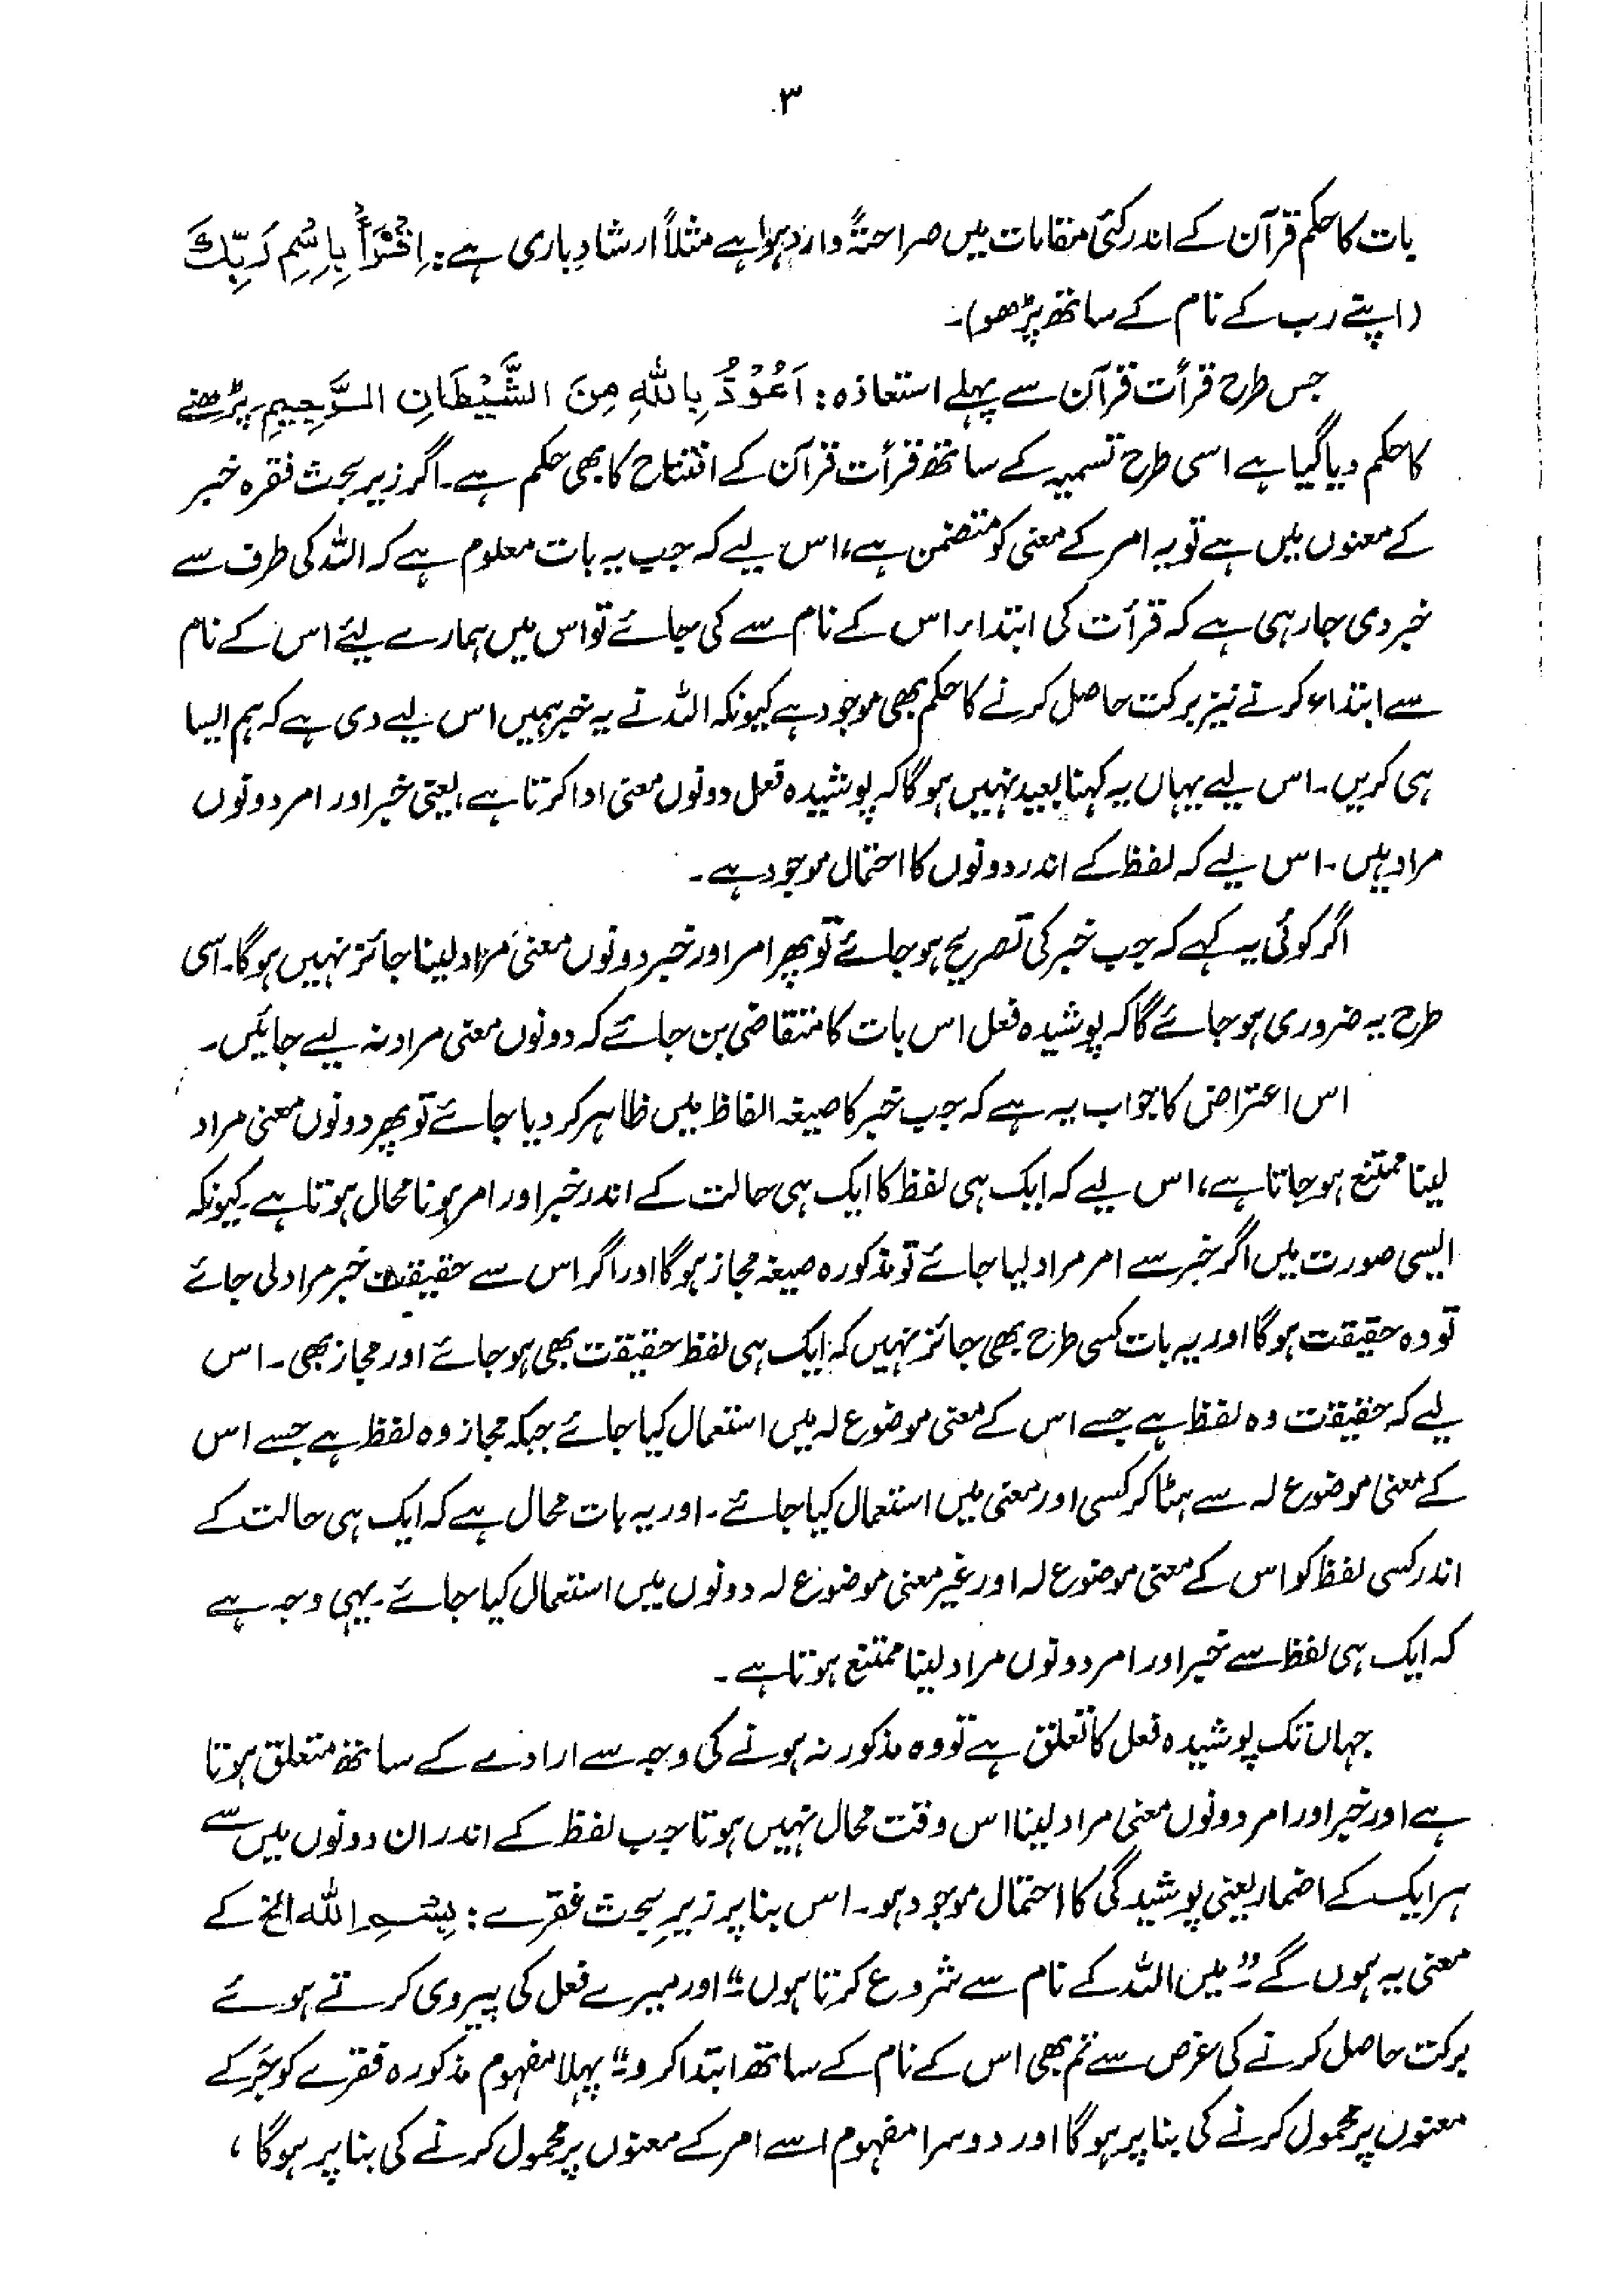 ۳
بات کا حکم قرآن کے اندر کئی مقامات میں صراحتہً وارد ہوا ہے مثلاً ارشادِ باری ہے: اِقْرَأْ بِاسْمِ رَبِّكَ
(اپنے رب کے نام کے ساتھ پڑھو)۔
جس طرح قرأت قرآن سے پہلے استعاذہ: اَعُوْذُ بِاللهِ مِنَ الشَّيْطَانِ الرَّجِيمِ پڑھنے
کا حکم دیا گیا ہے اسی طرح تسمیہ کے ساتھ قرأت قرآن کے افتتاح کا بھی حکم ہے۔ اگر زیر بحث فقرہ خبر
کے معنوں میں ہے تو یہ امر کے معنی کو متضمن ہے، اس لیے کہ جب یہ بات معلوم ہے کہ اللہ کی طرف سے
خبر دی جا رہی ہے کہ قرأت کی ابتداء اس کے نام سے کی جائے تو اس میں ہمارے لیئے اس کے نام
سے ابتداء کرنے نیز برکت حاصل کرنے کا حکم بھی موجود ہے کیونکہ اللہ نے یہ خبر ہمیں اس لیے دی ہے کہ ہم ایسا
ہی کریں۔ اس لیے یہاں یہ کہنا بعید نہیں ہوگا کہ پوشیدہ فعل دونوں معنی ادا کرتا ہے، یعنی خبر اور امر دونوں
مراد ہیں۔ اس لیے کہ لفظ کے اندر دونوں کا احتمال موجود ہے۔
اگر کوئی یہ کہے کہ جب خبر کی تصریح ہو جائے تو پھر امر اور خبر دونوں معنی مراد لینا جائز نہیں ہوگا۔ اسی
طرح یہ ضروری ہو جائے گا کہ پوشیدہ فعل اس بات کا متقاضی بن جائے کہ دونوں معنی مراد نہ لیے جائیں۔
اس اعتراض کا جواب یہ ہے کہ جب خبر کا صیغہ الفاظ میں ظاہر کر دیا جائے تو پھر دونوں معنی مراد
لینا ممتنع ہو جاتا ہے، اس لیے کہ ایک ہی لفظ کا ایک ہی حالت کے اندر خبر اور امر ہونا محال ہوتا ہے۔ کیونکہ
ایسی صورت میں اگر خبر سے امر مراد لیا جائے تو مذکورہ صیغہ مجاز ہوگا اور اگر اس سے حقیقت خبر مراد لی جائے
تو وہ حقیقت ہوگا اور یہ بات کسی طرح بھی جائز نہیں کہ ایک ہی لفظ حقیقت بھی ہو جائے اور مجاز بھی۔ اس
لیے کہ حقیقت وہ لفظ ہے جسے اس کے معنی موضوع لہ میں استعمال کیا جائے جبکہ مجاز وہ لفظ ہے جسے اس
کے معنی موضوع لہ سے ہٹا کر کسی اور معنی میں استعمال کیا جائے۔ اور یہ بات محال ہے کہ ایک ہی حالت کے
اندر کسی لفظ کو اس کے معنی موضوع لہ اور غیر معنی موضوع لہ دونوں میں استعمال کیا جائے۔ یہی وجہ ہے
کہ ایک ہی لفظ سے خبر اور امر دونوں مراد لینا ممتنع ہوتا ہے۔
جہاں تک پوشیدہ فعل کا تعلق ہے تو وہ مذکور نہ ہونے کی وجہ سے ارادے کے ساتھ متعلق ہوتا
ہے اور خبر اور امر دونوں معنی مراد لینا اس وقت محال نہیں ہوتا جب لفظ کے اندر ان دونوں میں سے
ہر ایک کے اضمار یعنی پوشیدگی کا احتمال موجود ہو۔ اس بنا پر زیرِ بحث فقرے: بِسْمِ اللہ الخ کے
معنی یہ ہوں گے "میں اللہ کے نام سے شروع کرتا ہوں" اور میرے فعل کی پیروی کرتے ہوئے
برکت حاصل کرنے کی غرض سے تم بھی اس کے نام کے ساتھ ابتدا کرو۔" پہلا مفہوم مذکورہ فقرے کو خبر کے
معنوں پر محمول کرنے کی بنا پر ہوگا اور دوسرا مفہوم اسے امر کے معنوں پر محمول کرنے کی بنا پر ہوگا،